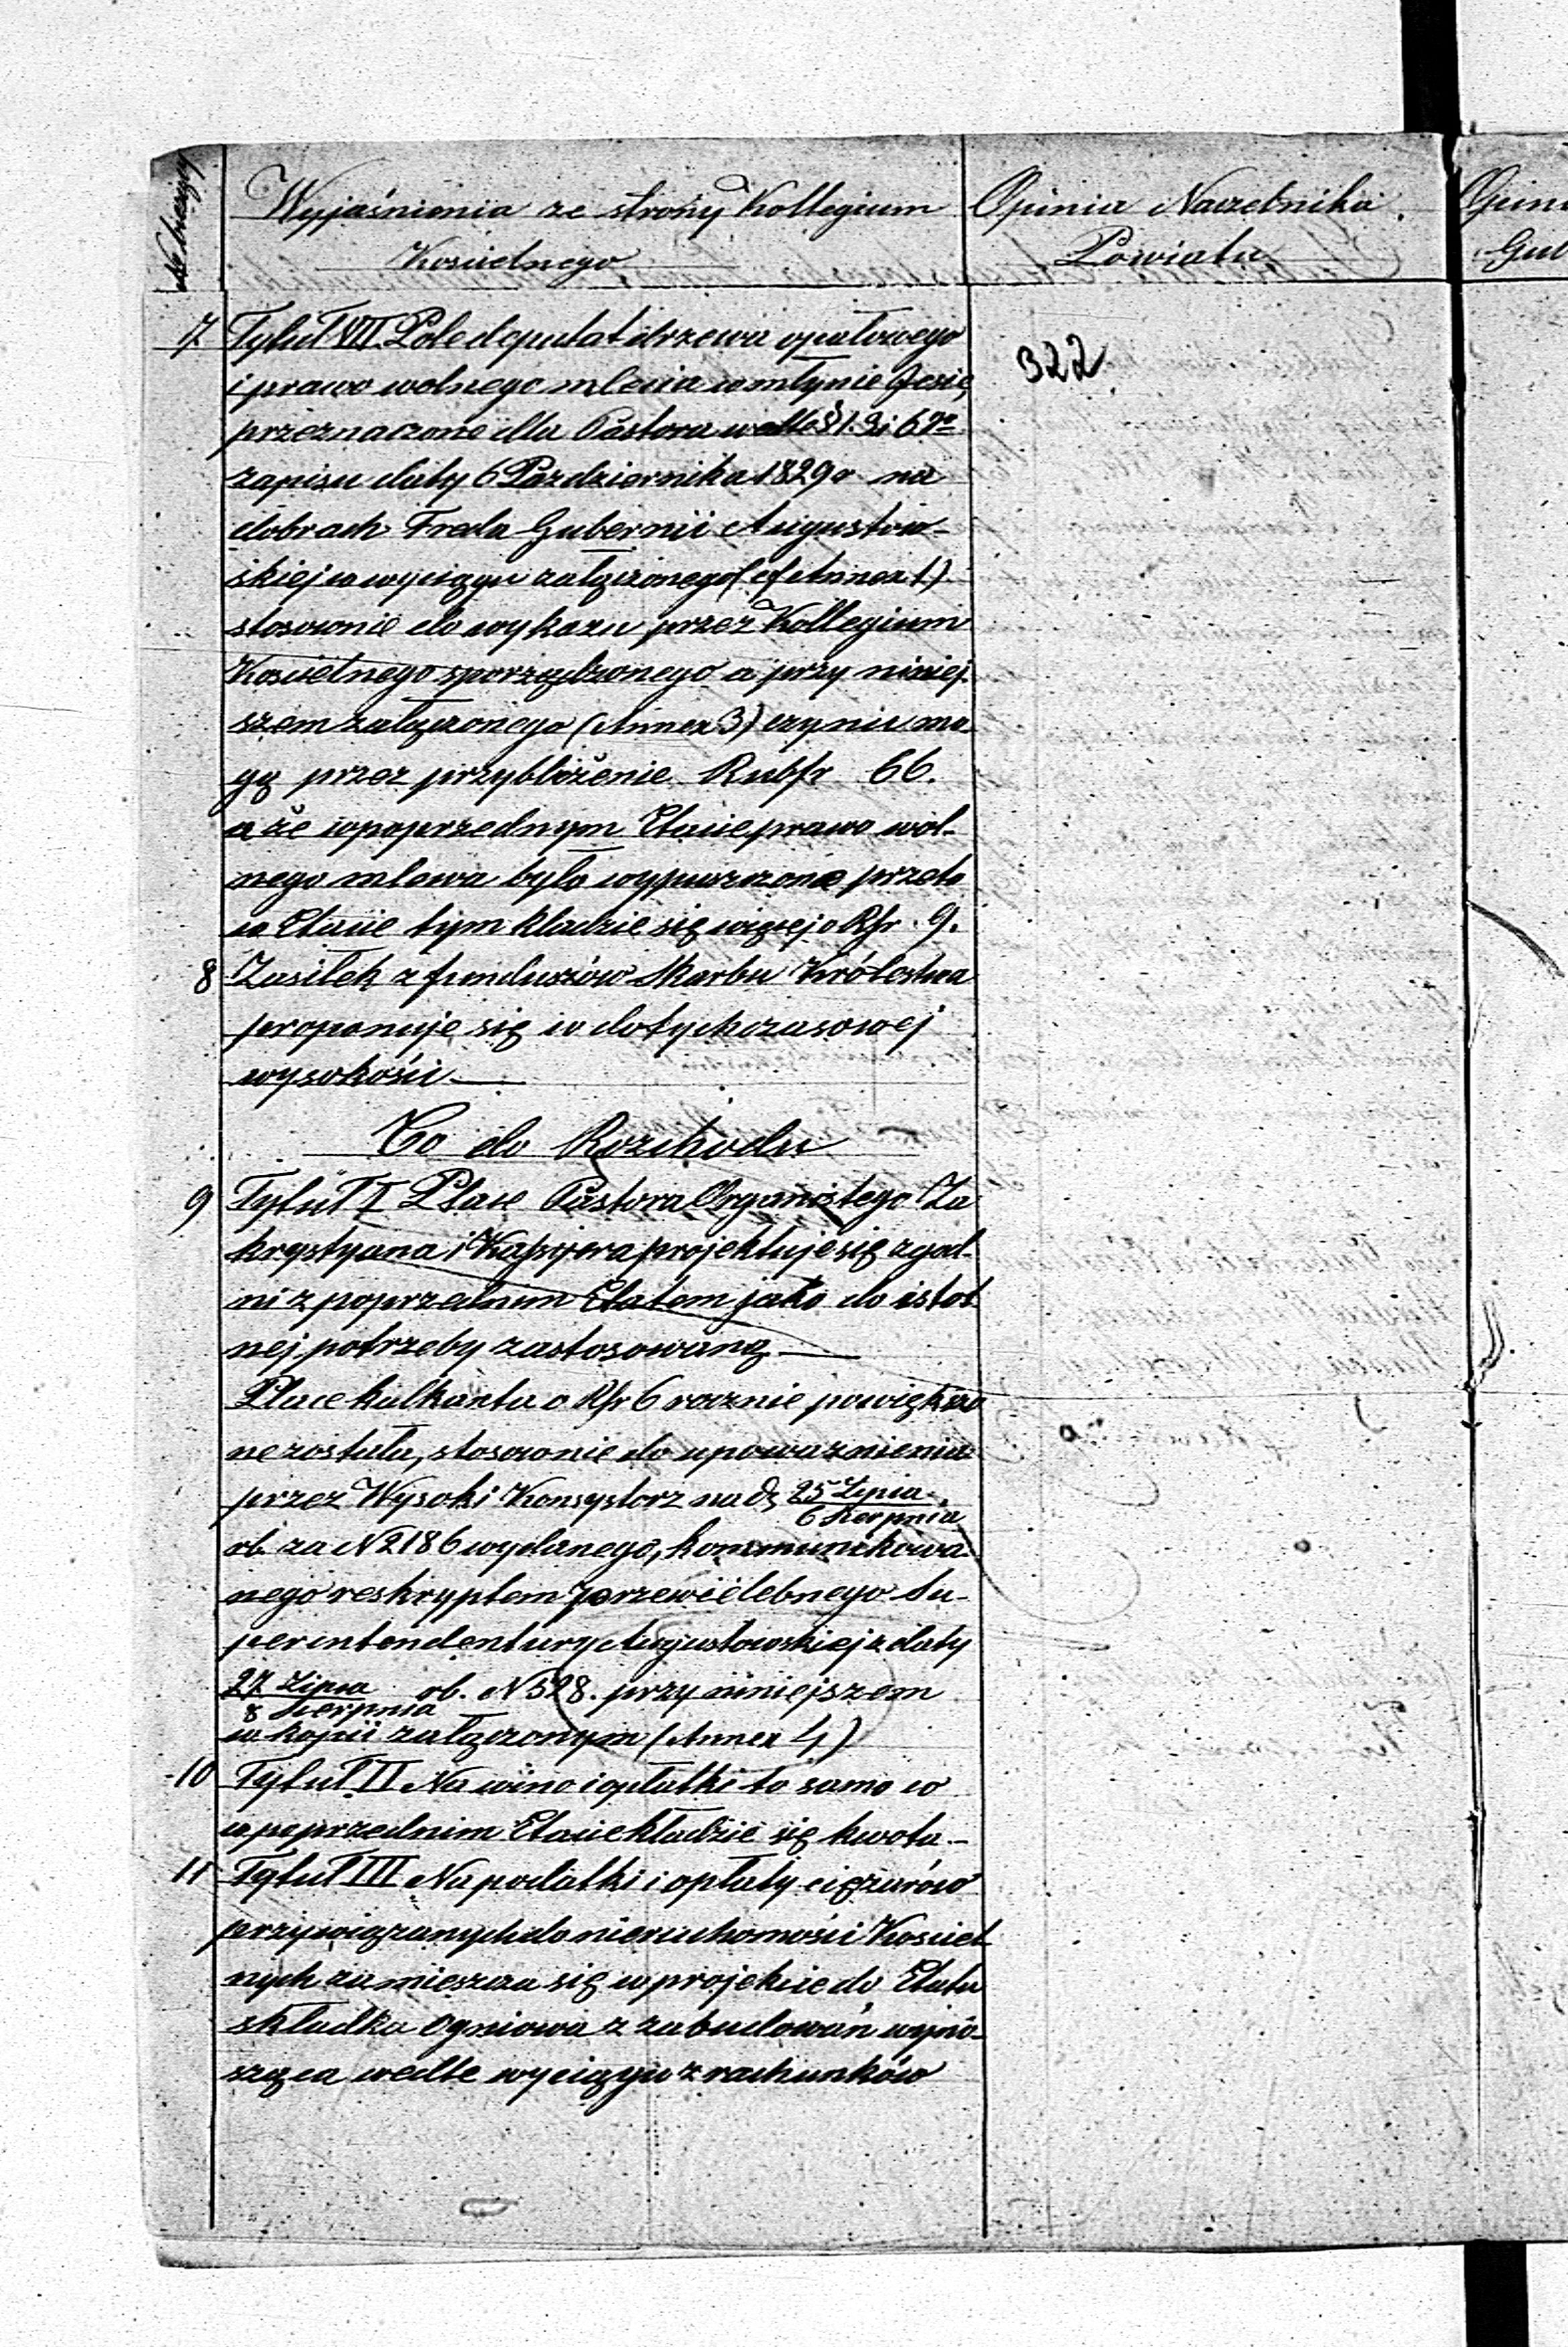 № bieżący
Wyjaśnienia ze strony Kollegium
Kościelnego
Opinia Naczelnika
Powiatu
Opini
Gub
322
7 Tytuł VII. Pole deputat drzewa opałowego
i prawo wolnego mlewa w młynie Jesie,
przeznaczone dla Pastora wedle § 1. 9 i 6go
zapisu daty 6 Pazdziernika 1829 r na
dobrach Freda Gubernii Augustow-
skiej w wyciągu załączonego (Annex 1)
stosownie do wykazu przez Kollegium
Kościelnego sporządzonego a przy niniej-
szem załączonego (Annex 3) czynić mo-
gą przez przybliżenie Rubsr 66.
a że w poprzednym Etacie prawo wol-
nego mlewa było wypuszczone przeto
w Etacie tym kładzie się więcej o Rsr. 9.
8 Zasiłek z funduszów Skarbu Królestwa
proponuje się w dotychczasowej
wysokości —
Co do Rozchodu
9 Tytuł I Płace Pastora Organistego Za
krystyana i Kassjera projektuje się zgod-
ni z poprzednim Etatem jako do istot
nej potrzeby zastosowaną —
Płace kalkanta o Rsr 6 rocznie powiększo
ne zostału, stosownie do upoważnienia
przez Wysoki Konsystorz na d. 25 Lipca
6 Sierpnia
rb. za N 2186 wydanego, kommunikowa-
nego reskryptem przewielebnego Su-
perintendentury Augustowskiej z daty
27 Lipca
8 Sierpnia rb. N 528. przy niniejszem
w kopii załączonym (Annex 4)
10 Tytuł II Na wino i opłatki to samo co
w poprzednim Etacie kładzie się kwota. —
11 Tytuł III Na podatki i opłaty ciężarów
przywiązanych do nieruchomości Kościel
nych zamieszcza się w projekcie do Etatu
składka Ogniowa z zabudowań wyno-
sząca wedle wyciągu z rachunków